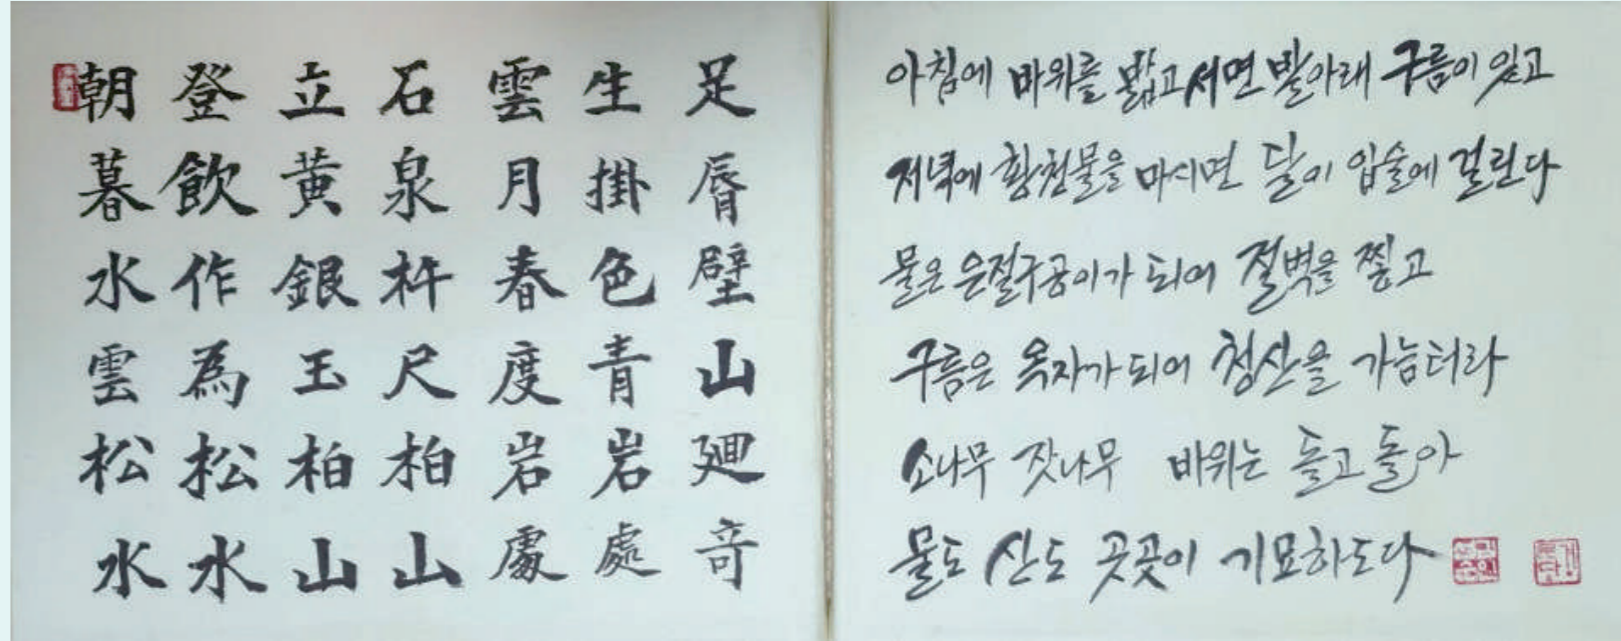 朝登立石雲生足
暮飲黃泉月掛脣
水作銀杵春色壁
雲為玉尺度青山
松松柏柏岩岩廻
水水山山處處奇
아침에 바위를 밟고 서면 발아래 구름이 있고
저녁에 황천물을 마시면 달이 입술에 걸린다
물은 은절구공이가 되어 절벽을 찧고
구름은 옥자가 되어 청산을 가늠터라
소나무 잣나무 바위는 돌고 돌아
물도 산도 곳곳이 기묘하도다